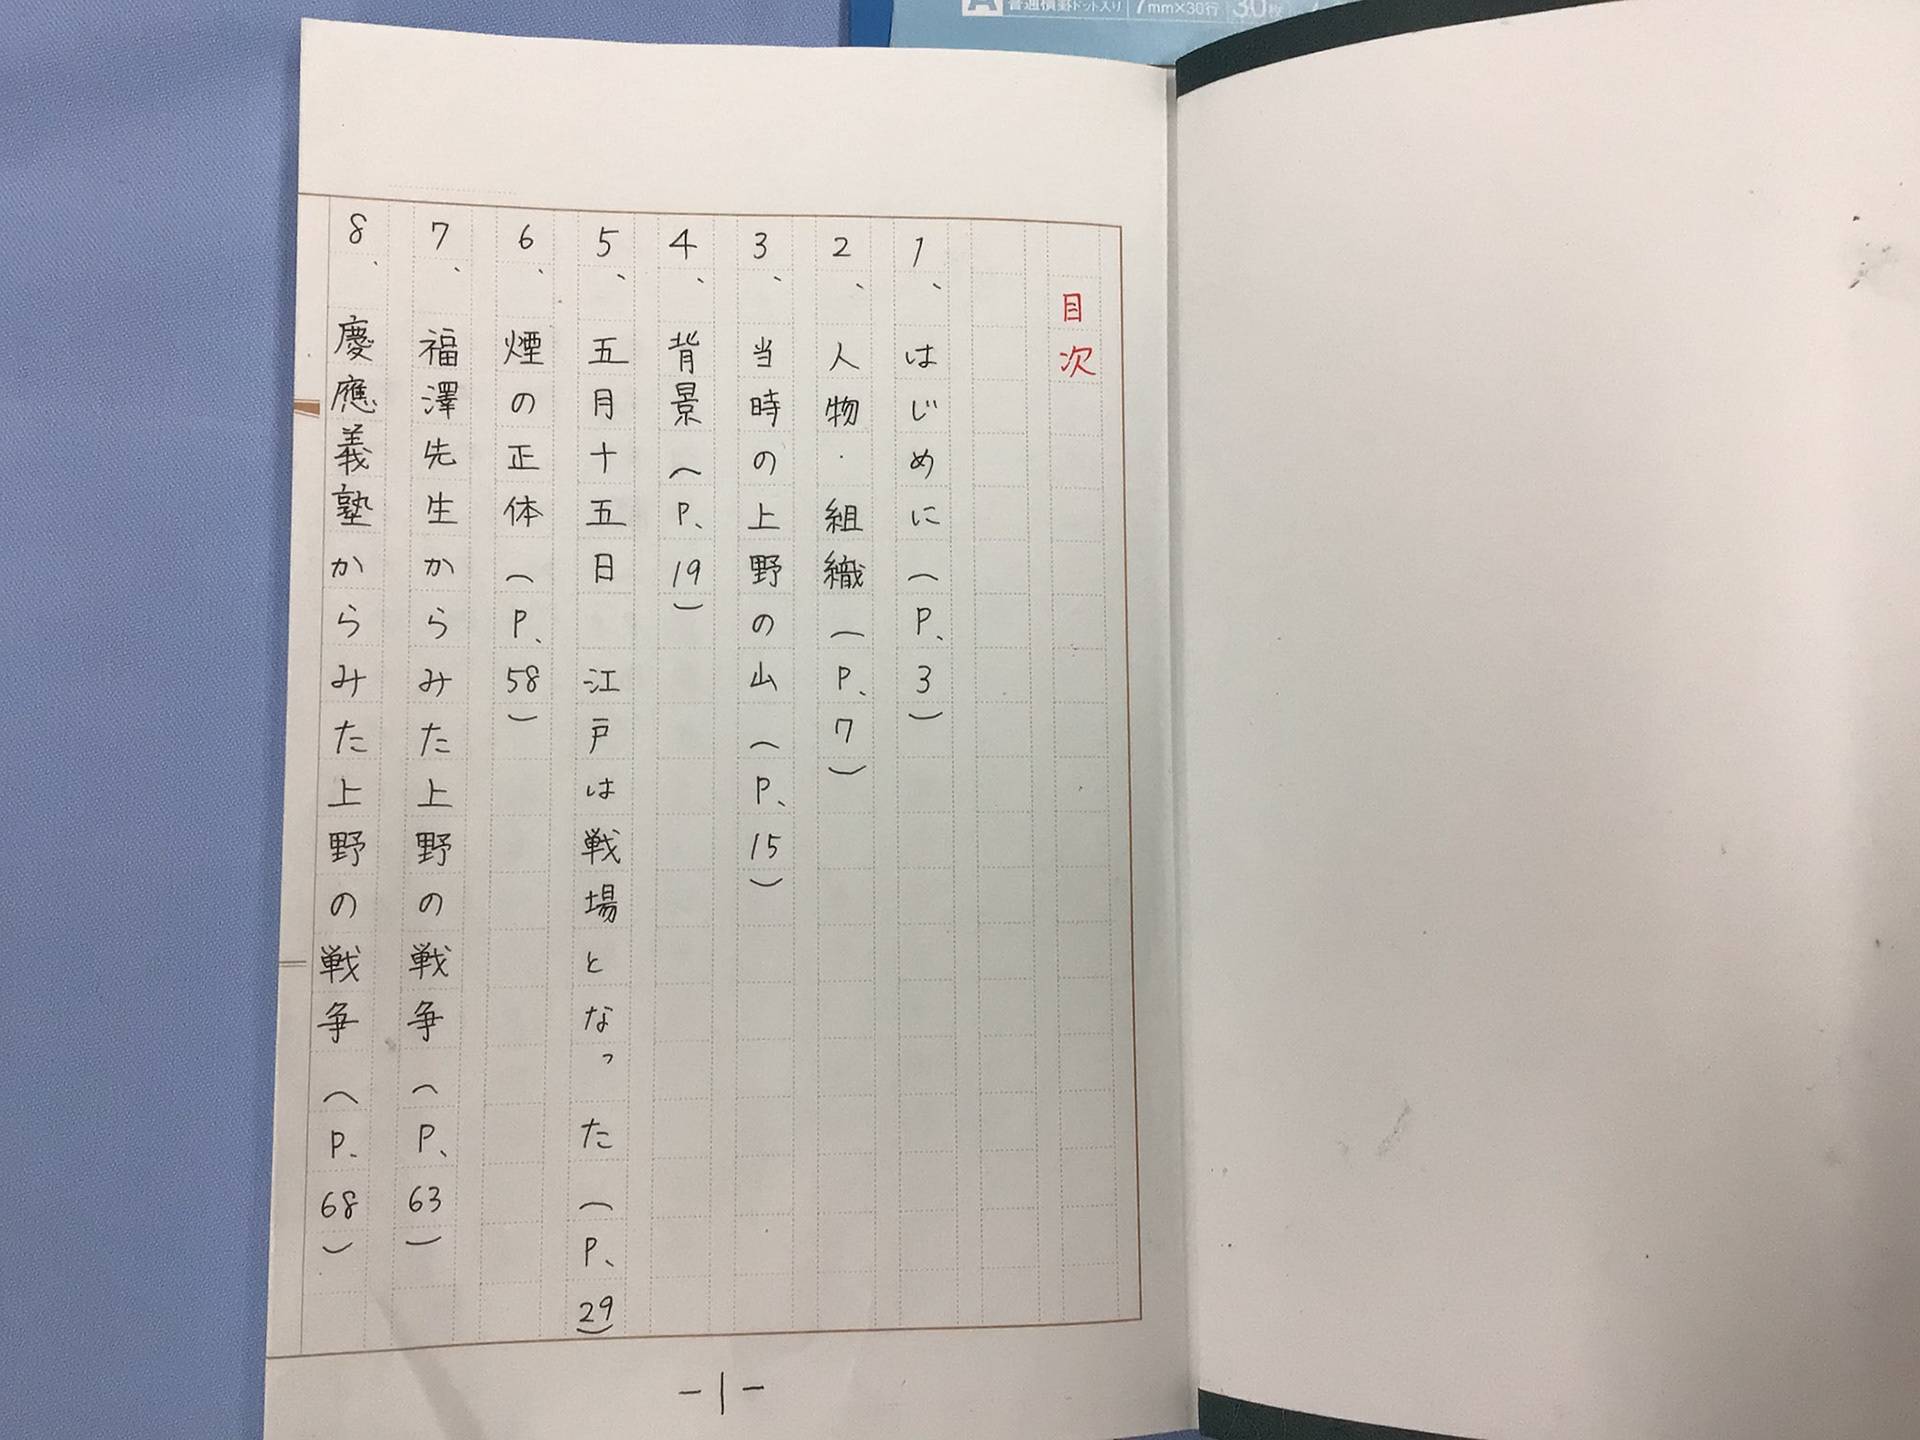 普通横罫ドット入り 7mm×30行 30枚
目次
1、はじめに(P、3)
2、人物・組織(P、7)
3、当時の上野の山(P、15)
4、背景(P、19)
5、五月十五日 江戸は戦場となった(P、29)
6、煙の正体(P、58)
7、福澤先生からみた上野の戦争(P、63)
8、慶應義塾からみた上野の戦争(P、68)
-1-